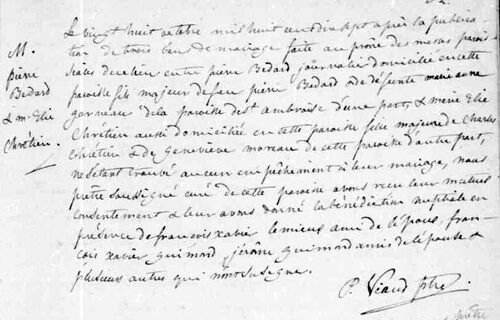 Le vingt huit octobre mil huit cent dix sept après la publica
M. tion de trois ban de mariage faite au prône des messes parois
pierre siales de ce lieu entre pierre Bedard journalié domicilié en cette
Bedard paroisse fils majeur de feu pierre Bedard & de défunte marie anne
& m. Elie garneau de la paroisse de st ambroise d'une part, & marie Elie
Chrétien. Chrétien aussi domiciliée en cette paroisse fille majeure de Charles
Chrétien & de Geneviève moreau de cette paroisse d'autre part,
ne s'étant trouvé aucun empêchement à leur mariage, nous
prêtre soussigné curé de cette paroisse avons reçu leur mutuel
consentement & leur avons donné la bénédiction nuptiale en
présence de françois xavier lemieux ami de l'époux, fran-
çois xavier guimard, jérôme guimard amis de l'épouse &
plusieurs autres qui n'ont su signé.
P. Viaud ptre